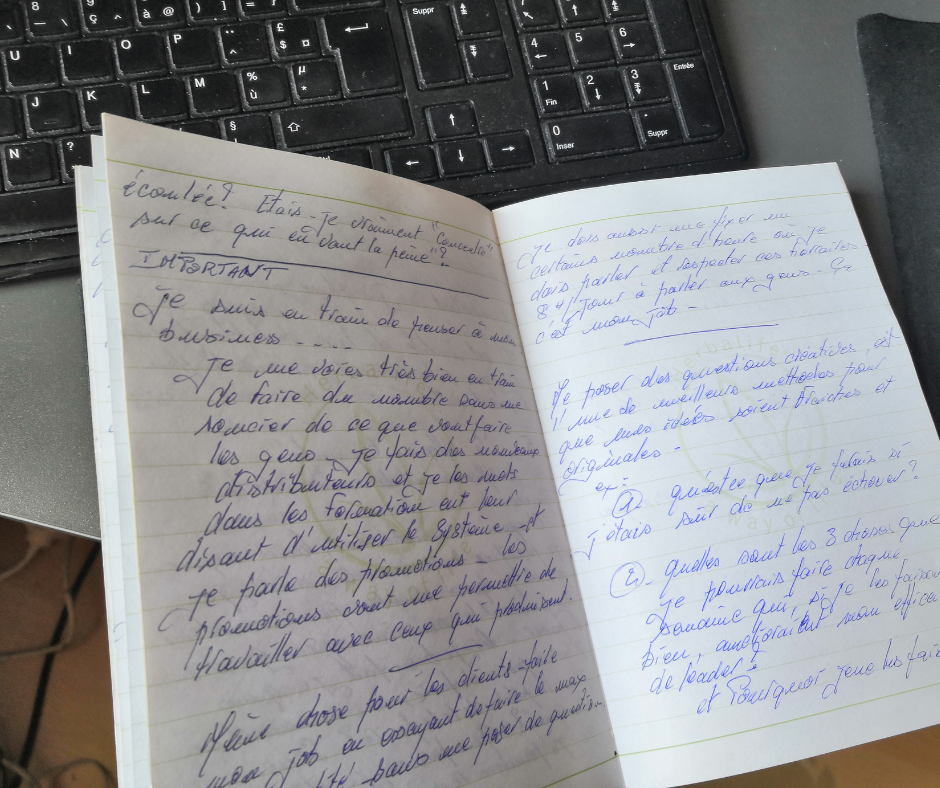 écoulée? Etais-je vraiment "Concentré"
sur ce qui en vaut la peine"?
IMPORTANT
Je suis en train de penser à mon
business ....
Je me voies très bien en train
de faire du nombre sans me
soucier de ce que vont faire
les gens. Je fais des nouveaux
distributeurs et je les mets
dans les formation en leur
disant d'utiliser le système et
je parle des promotions - les
promotions vont me permettre de
travailler avec ceux qui produisent.
Même chose pour les clients - faire
mon job en essayant de faire le max
sans me poser de question.
Je dois aussi me fixer un
certains nombre d'heure où je
dois parler et respecter ces horaires
8 H/Jour à parler aux gens - Ça
c'est mon job -
Me poser des questions créatives, est
l'une de meilleurs methodes pour
que mes idées soient fraiches et
originales -
ex:
1) qu'estce que je faisais si
j'étais sûr de ne pas échouer?
2. quelles sont les 3 choses que
je pourrais faire chaque
semaine qui, si je les faisais
bien, amélioraient mon effica
de leader?
et Pourquoi je ne les fais
8 _ 9 ç ^ 0 à @ ) ] ° £ $ ¤ Suppr
U I O P
J K L M % ù µ *
N ? § 
7 4 5 6 1 Fin 2 3 Entrée
0 Inser . Suppr